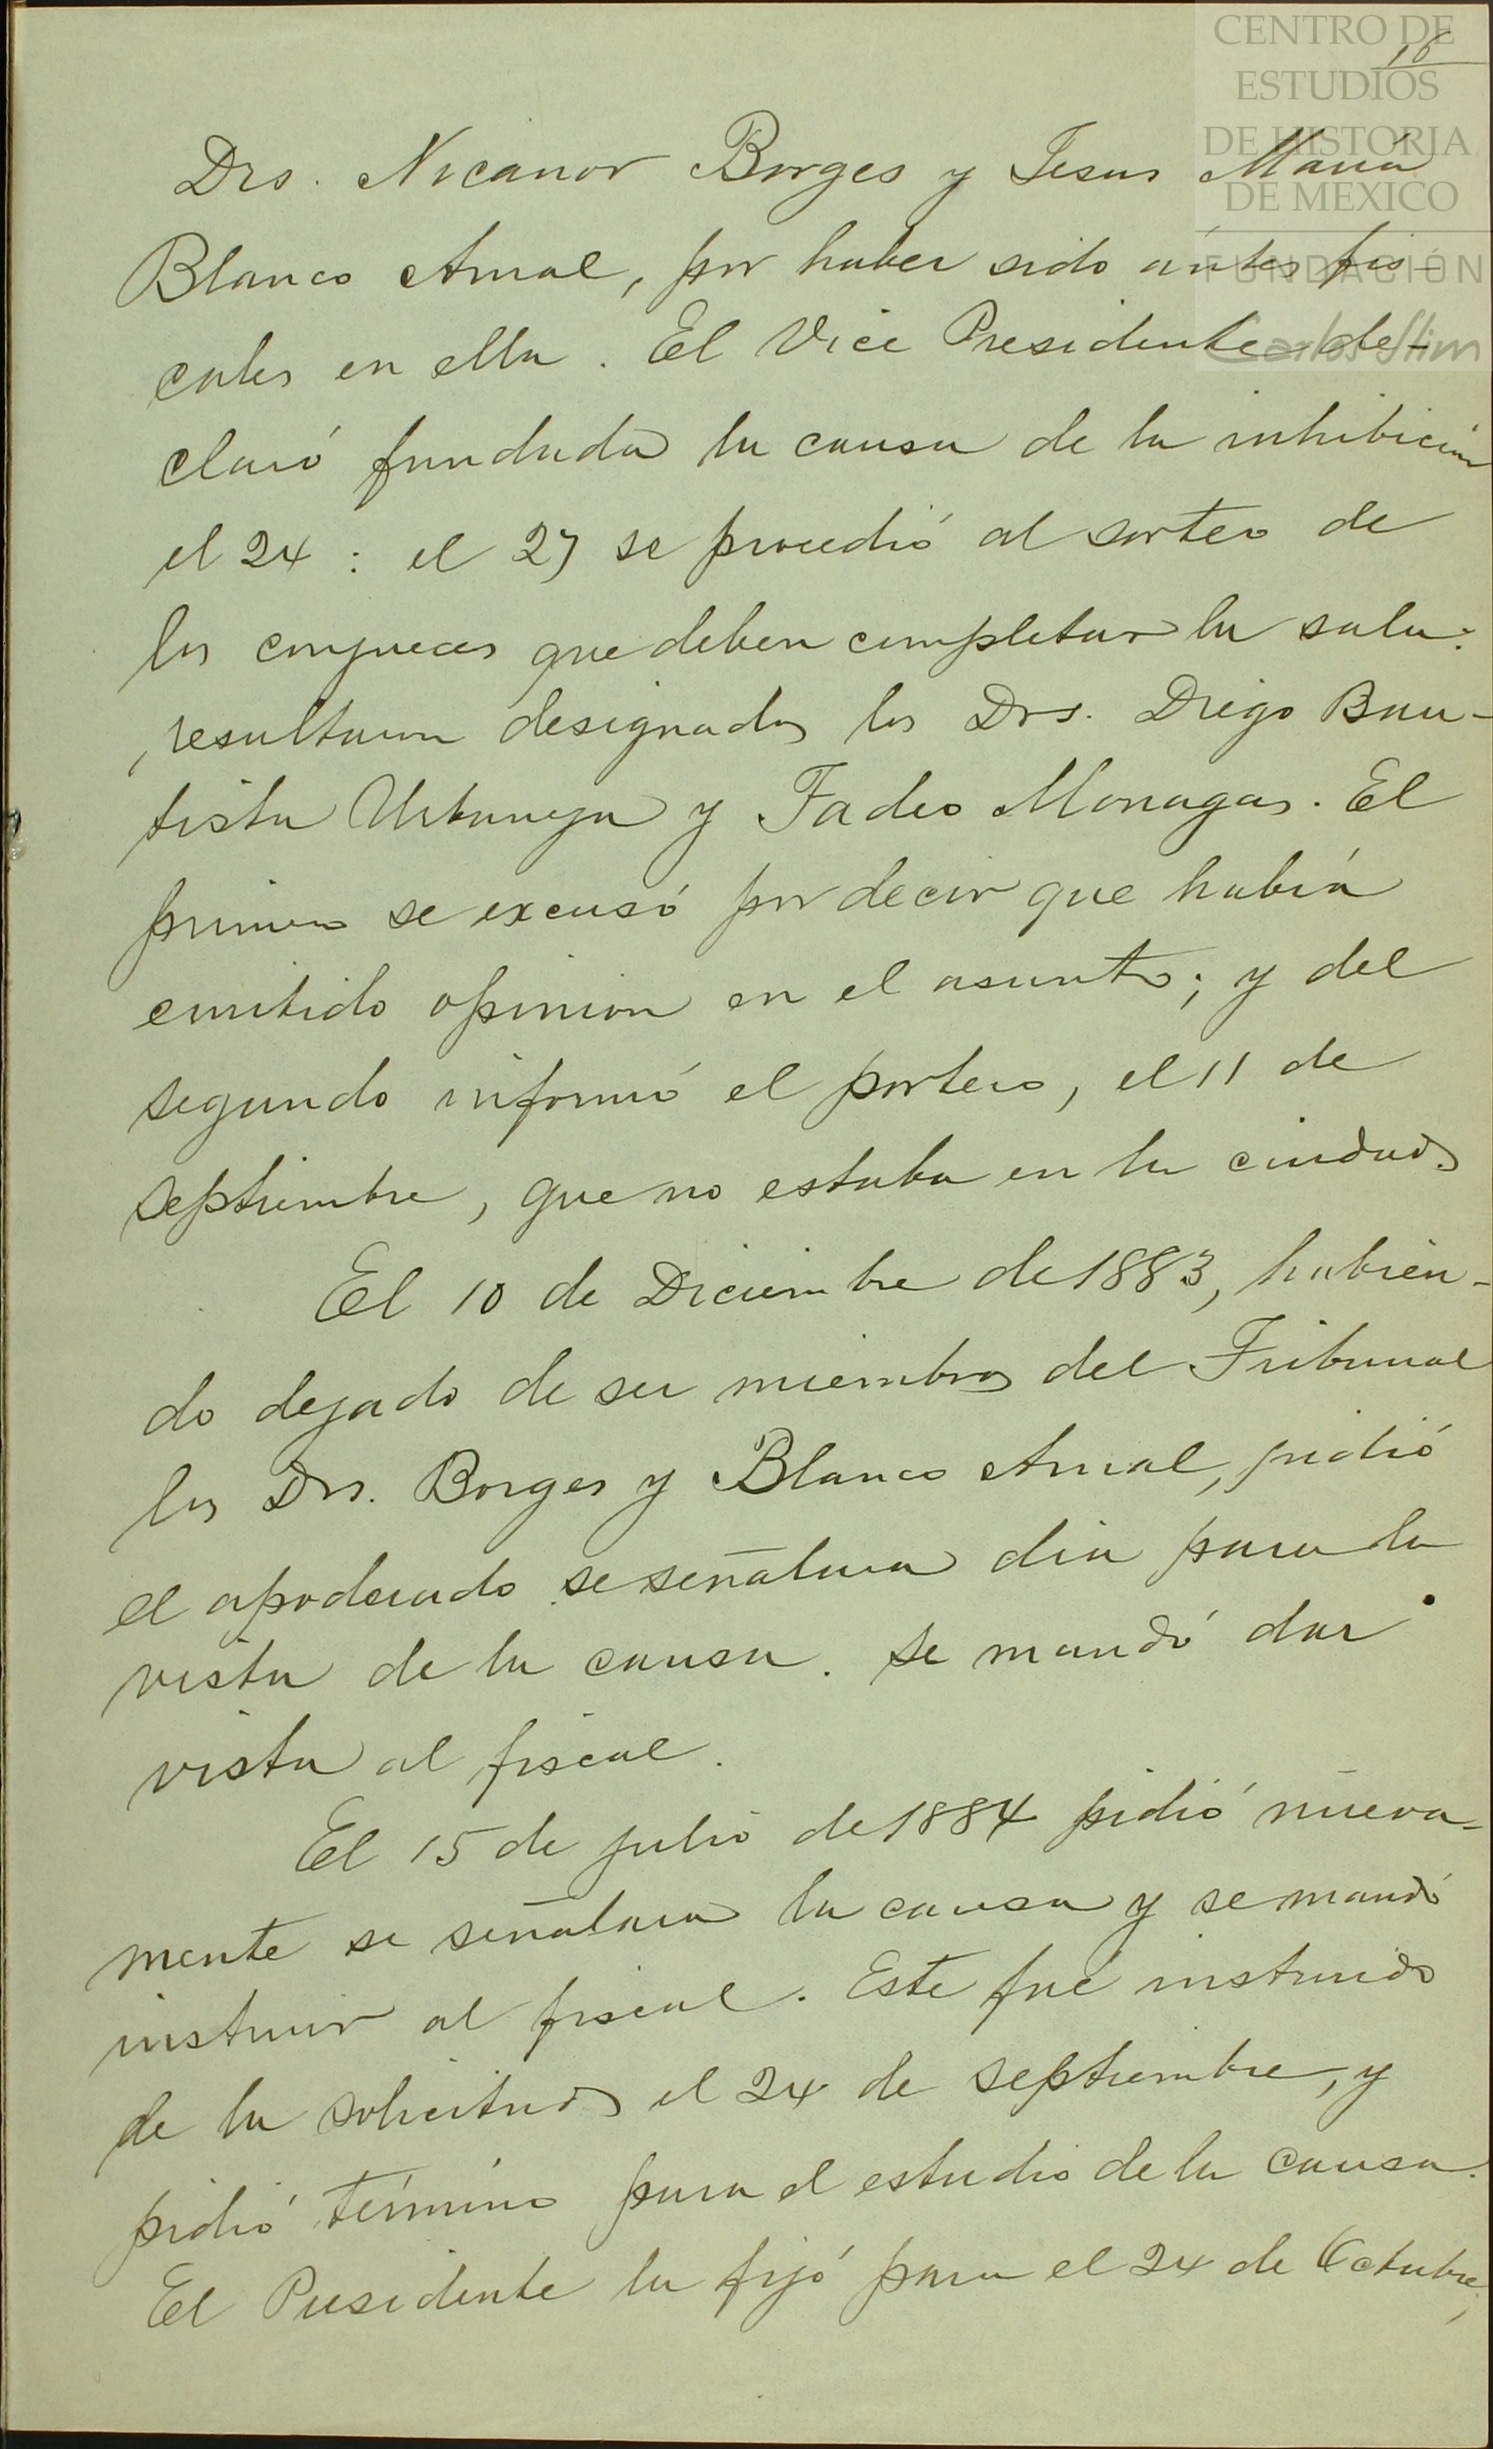 CENTRO DE
ESTUDIOS
DE HISTORIA
DE MEXICO
FUNDACIÓN
Carlos Slim
16
Drs. Nicanor Borges y Jesus María
Blanco Arnal, por haber sido ántes fis-
cales en ella. El Vice Presidente de-
claró fundada la causa de la inhibición
el 24: el 27 se procedió al sorteo de
los conjueces que deben completar la sala:
resultaron designados los Drs. Diego Bau-
tista Urbaneja y Tadeo Monagas. El
primero se excusó por decir que habia
emitido opinion en el asunto; y del
segundo informó el portero, el 11 de
septiembre, que no estaba en la ciudad.
El 10 de Diciembre de 1883, habien-
do dejado de ser miembros del Tribunal
los Drs. Borges y Blanco Arnal, pidió
el apoderado se señalara dia para la
vista de la causa. se mandó dar
vista al fiscal.
El 15 de julio de 1884 pidió nueva-
mente se señalara la causa y se mandó
instruir al fiscal. Este fué instruido
de la solicitud el 24 de septiembre, y
pidió término para el estudio de la causa.
El Presidente la fijó para el 24 de Octubre;